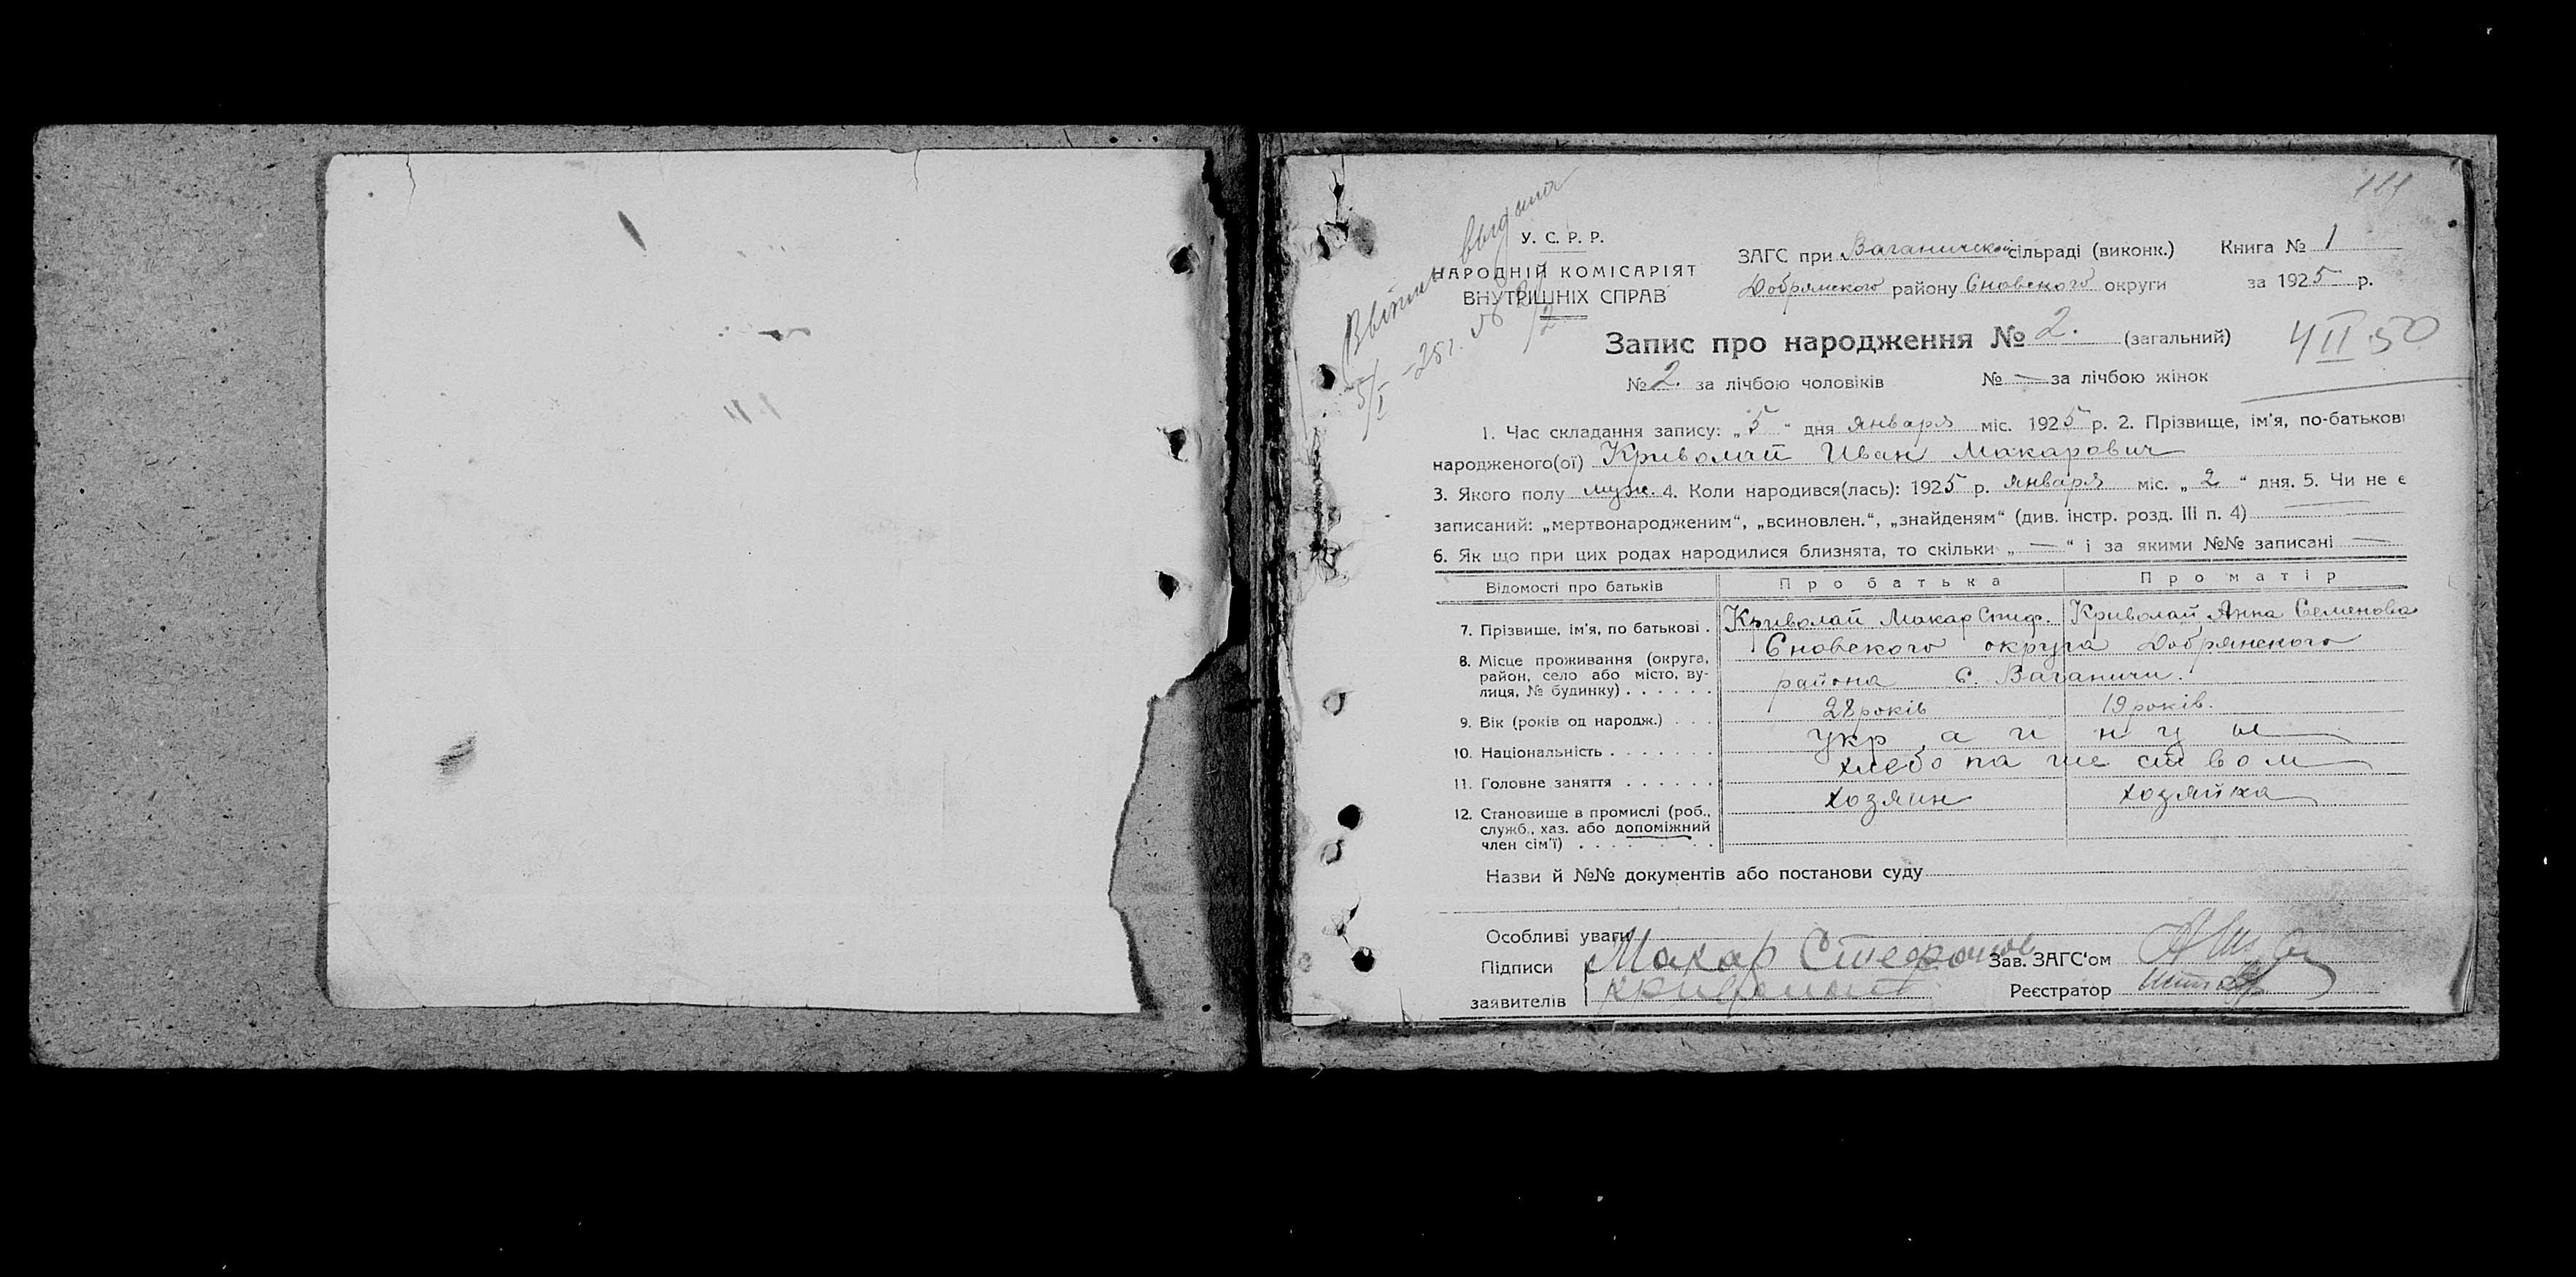 111
Выпись выдана
5/I -25 г. № 2/2
У. С. Р. Р.
НАРОДНІЙ КОМІСАРІЯТ
ВНУТРІШНІХ СПРАВ
ЗАГС при Ваганичской сільраді (виконк.) Книга № 1
Добрянского району Сновского округи за 1925 р.
Запис про народження № 2. (загальний)
4 II 50
№ 2. за лічбою чоловіків № — за лічбою жінок
1. Час складання запису: „ 5 “ дня Января міс. 1925 р. 2. Прізвище, ім'я, по-батькові
народженого(ої) Криволай Иван Макарович
3. Якого полу муж. 4. Коли народився(лась): 1925 р. Января міс. „ 2 “ дня. 5. Чи не є
записаний: „мертвонародженим“, „всиновлен.“, „знайденям“ (див. інстр. розд. III п. 4) —
6. Як що при цих родах народилися близнята, то скільки „ — “ і за якими №№ записані —
Відомості про батьків Про батька Про матір
7. Прізвище, ім'я, по батькові . Криволай Макар Стеф. Криволай Анна Семенова
8. Місце проживання (округа, район, село або місто, вулиця, № будинку) . . . . . . Сновского округа Добрянского
района с. Ваганичи.
9. Вік (років од народж.) . . . 28 років 19 років.
10. Національність . . . . . . . Украинцы
11. Головне заняття . . . . . . хлебопашеством
12. Становище в промислі (роб., служб., хаз. або допоміжний член сім'ї) . . . . . . . . . хозяин хозяйка
Назви й №№ документів або постанови суду
Особливі уваги
Підписи Макар Стефанов Зав. ЗАГС'ом
заявителів Криволай Реєстратор